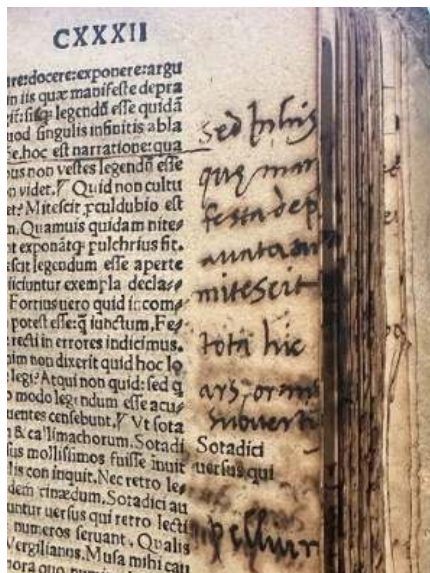 CXXXII
re:docere:exponere:argu
in iis quæ manifeste depra
git: sitq; legendũ esse quidã
uod singulis infinitis abla
se. hoc est narratione: qua
bus non vestes legendũ esse
n videt. Quid non cultu
et? Mitescit ꝓculdubio est
n. Quamuis quidam nites
t exponãtq; pulchrius fit.
scit legendum esse aperte
iiciuntur exempla decla
Fortius uero quid incom
potest esse: q iunctum. Fe
recti in errores indicimus.
nim non dixerit quid hoc lo
legi? Atqui non quid: sed q
o modo legendum esse acu
uentes censebunt. Vt sota
n & callimachorum. Sotadi
us mollissimos fuisse inuit
lis con inquit. Nec retro le
dem cinædum. Sotadici au
untur uersus qui retro lecti
numeros seruant. Qualis
Vergilianus. Musa mihi cau
nora quo
sed in his
quę man
festa dep
mitescit
tota hic
ars, or
subuerti
Sotadici
uersus qui